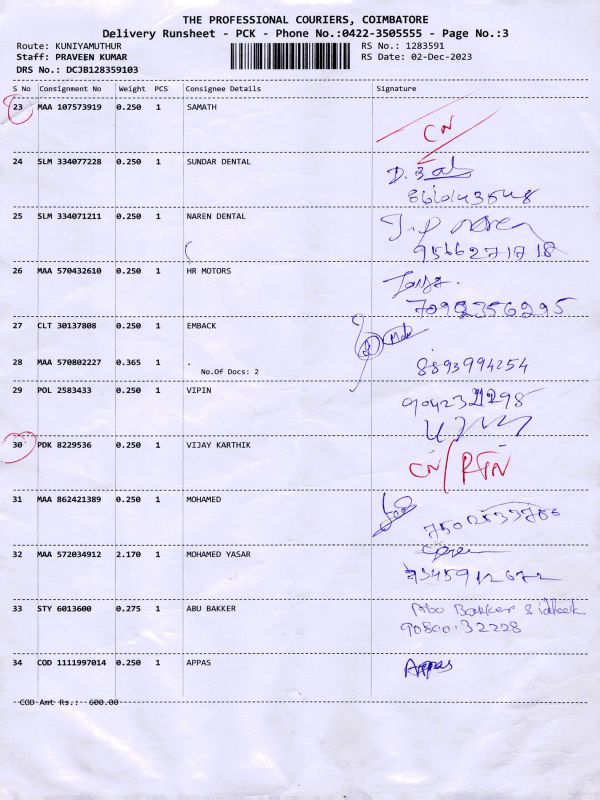 THE PROFESSIONAL COURIERS, COIMBATORE
Delivery Runsheet - PCK - Phone No.:0422-3505555 - Page No.:3
Route: KUNIYAMUTHUR
RS No.: 1283591
Staff: PRAVEEN KUMAR
RS Date: 02-Dec-2023
DRS No.: DCJB128359103
S No Consignment No Weight PCS Consignee Details Signature
23 MAA 107573919 0.250 1 SAMATH
CN
24 SLM 334077228 0.250 1 SUNDAR DENTAL
25 SLM 334071211 0.250 1 NAREN DENTAL
Naren
9566271718
26 MAA 570432610 0.250 1 HR MOTORS
7092356295
27 CLT 30137808 0.250 1 EMBACK
28 MAA 570802227 0.365 1 .
No.Of Docs: 2
8893994254
29 POL 2583433 0.250 1 VIPIN
30 PDK 8229536 0.250 1 VIJAY KARTHIK
CN/RTN
31 MAA 862421389 0.250 1 MOHAMED
32 MAA 572034912 2.170 1 MOHAMED YASAR
33 STY 6013600 0.275 1 ABU BAKKER
Abu Bakker Sidheek
90800.32228
34 COD 1111997014 0.250 1 APPAS
Appas
COD Amt Rs.: 600.00